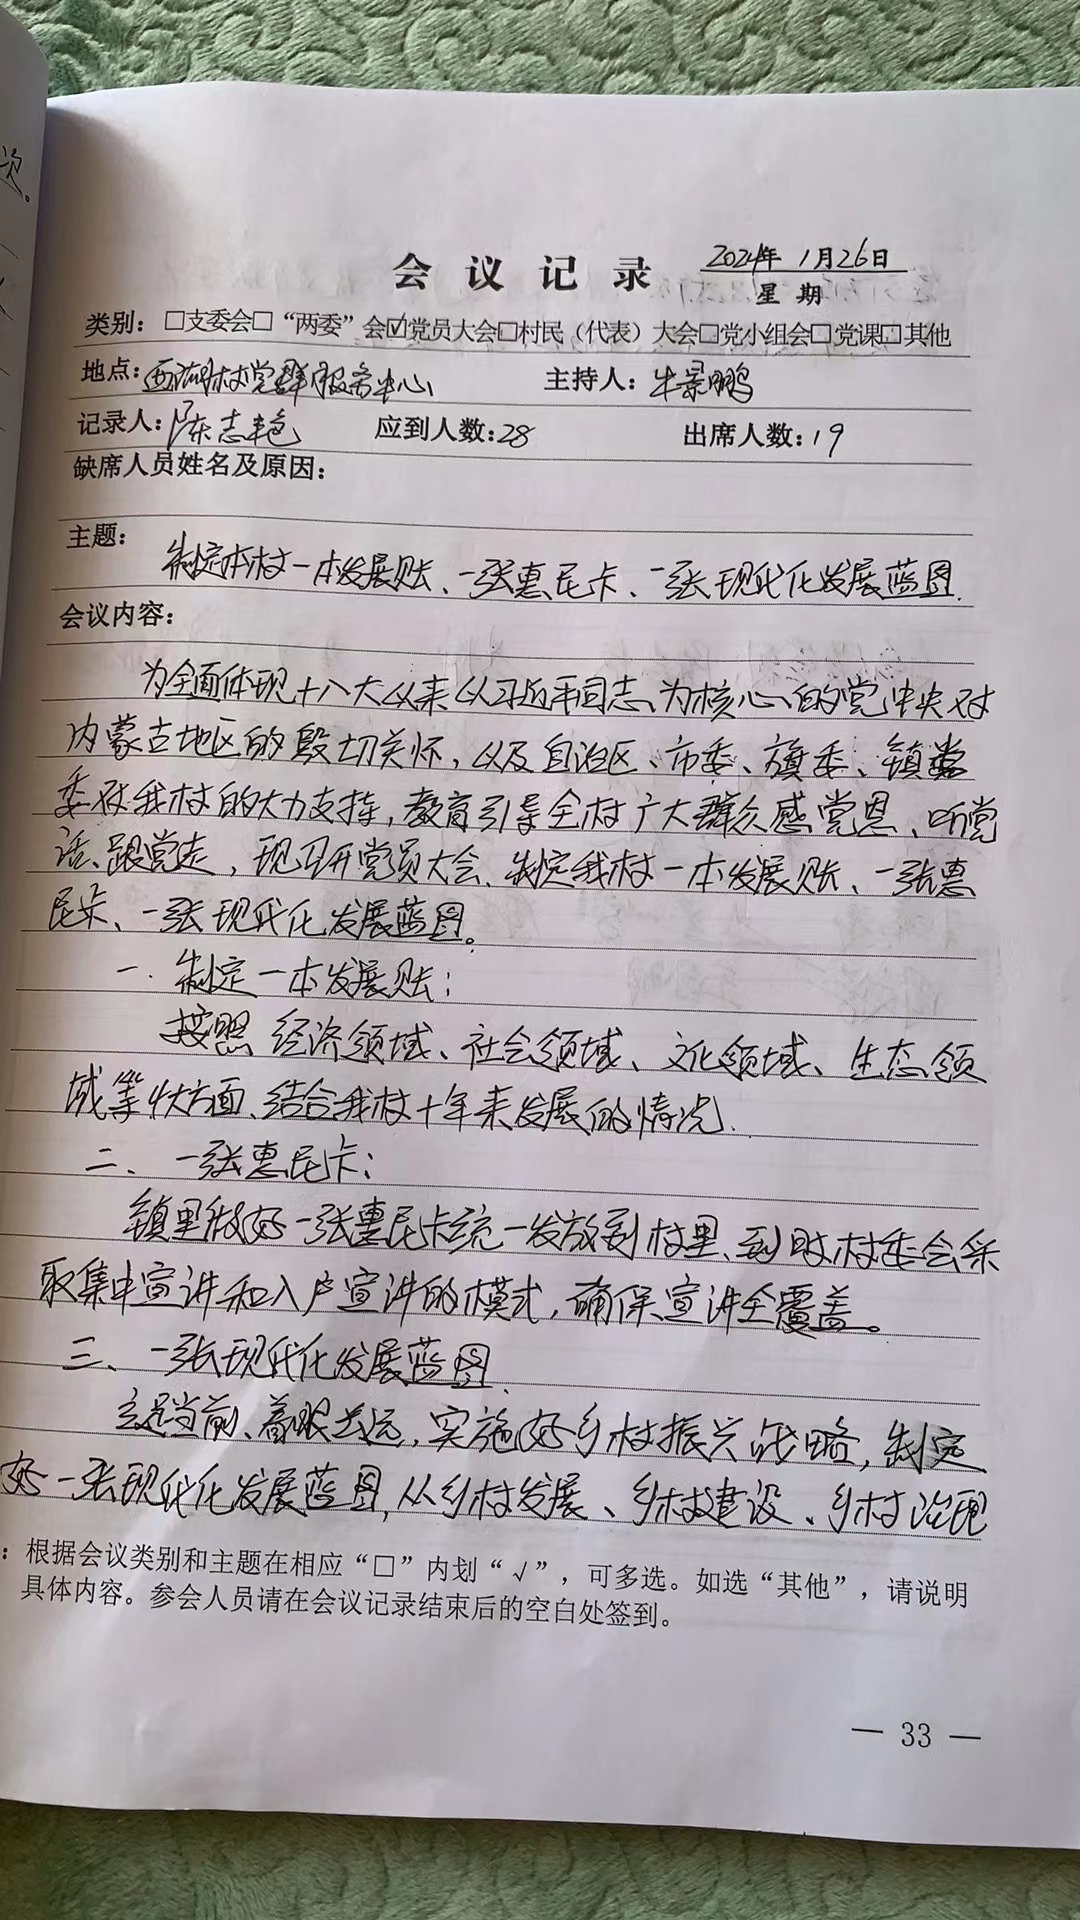 次。
会议记录 2024年 1月26日
星期
类别：□支委会□“两委”会☑党员大会□村民（代表）大会□党小组会□党课□其他
地点：西湖村党群服务中心 主持人：牛景鹏
记录人：陈志艳 应到人数：28 出席人数：19
缺席人员姓名及原因：
主题：
制定本村一本发展账、一张惠民卡、一张现代化发展蓝图.
会议内容：
为全面体现十八大以来以习近平同志为核心的党中央对
内蒙古地区的殷切关怀，以及自治区、市委、旗委、镇党
委对我村的大力支持，教育引导全村广大群众感党恩、听党
话、跟党走，现召开党员大会、制定我村一本发展账、一张惠
民卡、一张现代化发展蓝图。
一.制定一本发展账：
按照经济领域、社会领域、文化领域、生态领
域等方面、结合我村十年来发展的情况.
二、一张惠民卡：
镇里做好一张惠民卡统一发放到村里、到时村委会采
取集中宣讲和入户宣讲的模式，确保宣讲全覆盖。
三、一张现代化发展蓝图.
立足当前、着眼长远，实施好乡村振兴战略，制定
好一张现代化发展蓝图，从乡村发展、乡村建设、乡村治理
：根据会议类别和主题在相应“□”内划“√”，可多选。如选“其他”，请说明
具体内容。参会人员请在会议记录结束后的空白处签到。
— 33 —